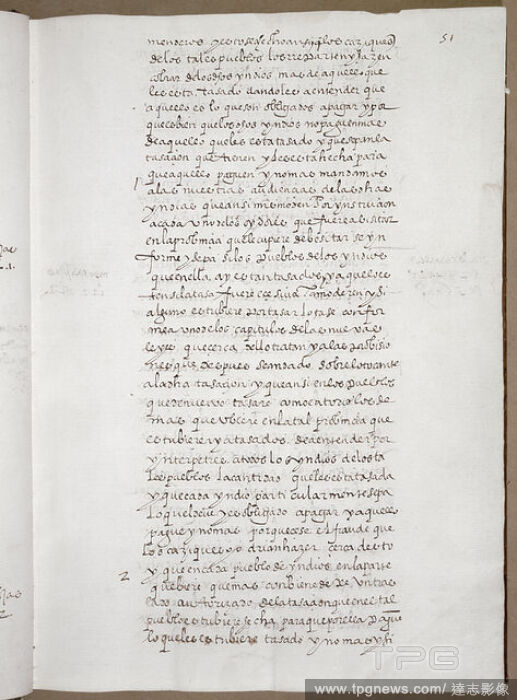 51
menores y esto se a echo ansi q̃ los caziques
de los tales pueblos los rreparten y hazen
cobrar de los dhos yndios mas de aquello que
les esta tasado dandoles a entender que
aquello es lo que son obligados a pagar y por
que es bien que los dhos yndios no paguen mas
de aquello que les esta tasado y que sepan la
tasaçion que tienen y les esta hecha para
que aquello paguen y no mas mandamos
1
a las nuestras audiencias de las dhas
yndias que ansi mesmo den por ynstruçion
a cada uno de los oydores que fuere a bisitar
en la probinçia que le cupiere de bisitar se yn
forme y sepa si los pueblos de los yndios
que en ella ay estan tasados y a que
tasa fuere exsesiva la moderen y si
alguno estubiere por tasar lo tase confor
me a uno de los capitulos de las nuevas
leyes que çerca dello tratan y a las probisio
nes que despues se an dado sobre lo tocante
a la dha tasaçion y que ansi en los pueblos
que de nuevo tasare como en todos los de
mas que ubiere en la tal probinçia que
estubieren ya tasados de a entender por
ynterpetre a todos los yndios de los ta
les pueblos la cantidad que les esta tasada
y que cada yndio particularmente sepa
lo que deue y es obligado a pagar y aquello
pague y no mas porque çese el fraude que
los caziques podrian hazer çerca desto
2
y que en cada pueblo de yndios en la parte
que biere que mas conbiene dexe un tras
lado autorizado de la tasaçion que en el tal
pueblo estubiere fecha para que por ella paguē
lo que les estubiere tasado y no mas y si
TPG
www.tpgnews.com/ 達志影像